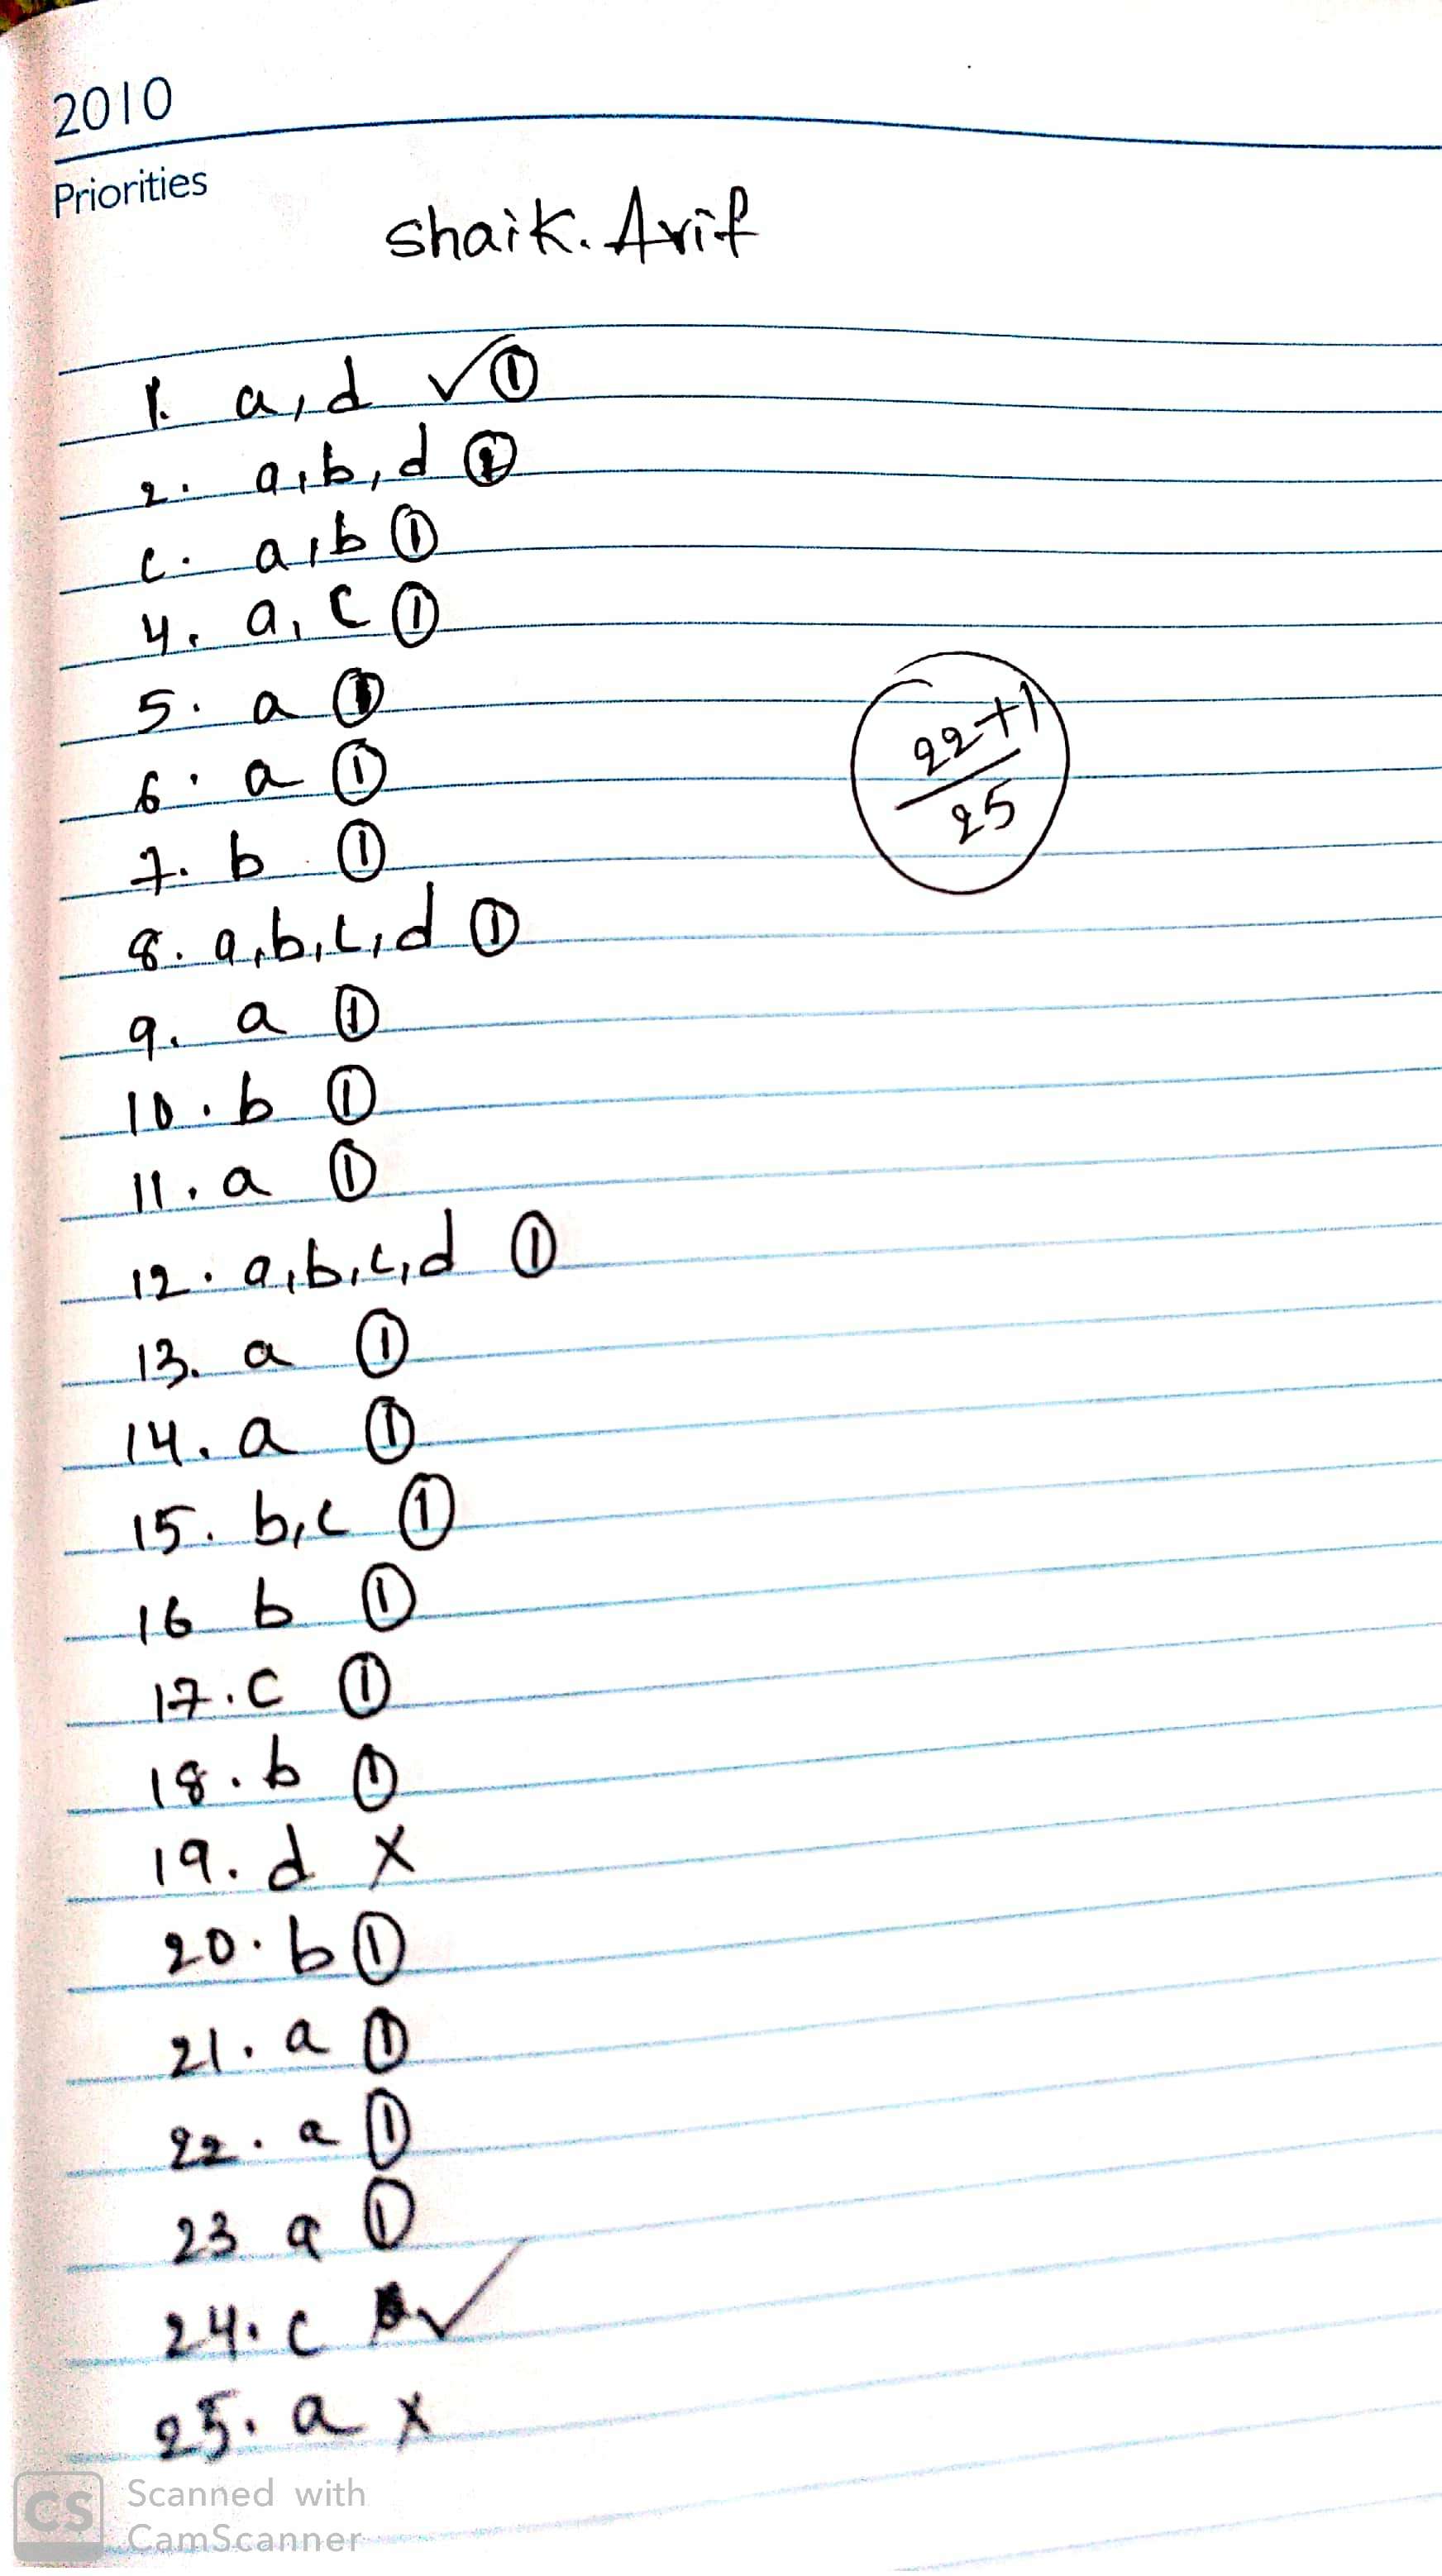 2010
Priorities
shaik. Arif
1. a, d ✓ ①
2. a, b, d ①
c. a, b ①
4. a, c ①
5. a ①
6. a ①
7. b ①
8. a, b, c, d ①
9. a ①
10. b ①
11. a ①
12. a, b, c, d ①
13. a ①
14. a ①
15. b, c ①
16 b ①
17. c ①
18. b ①
19. d x
20. b ①
21. a ①
22. a ①
23 a ①
24. c ✓
25. a x
22+1
25
CS
Scanned with
CamScanner